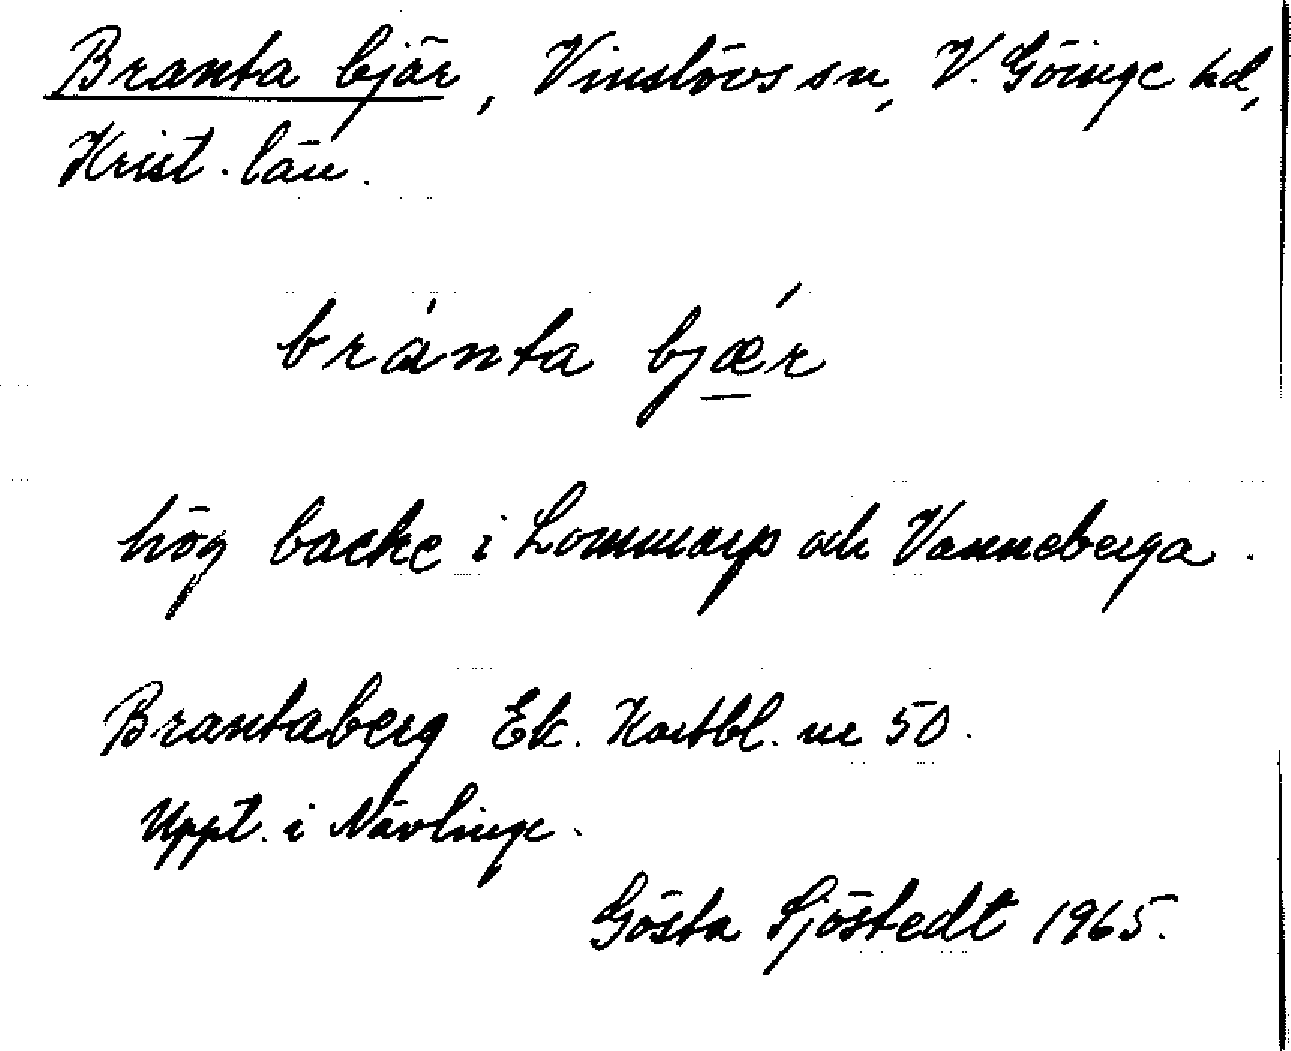 Branta bjär, Vinslövs sn, V. Göinge hd,
Krist. län.
bránta bjǽr
hög backe i Lommarp och Vanneberga.
Brantaberg Ek. Kartbl. nr 50.
Uppt. i Nävlinge.
Gösta Sjöstedt 1965.